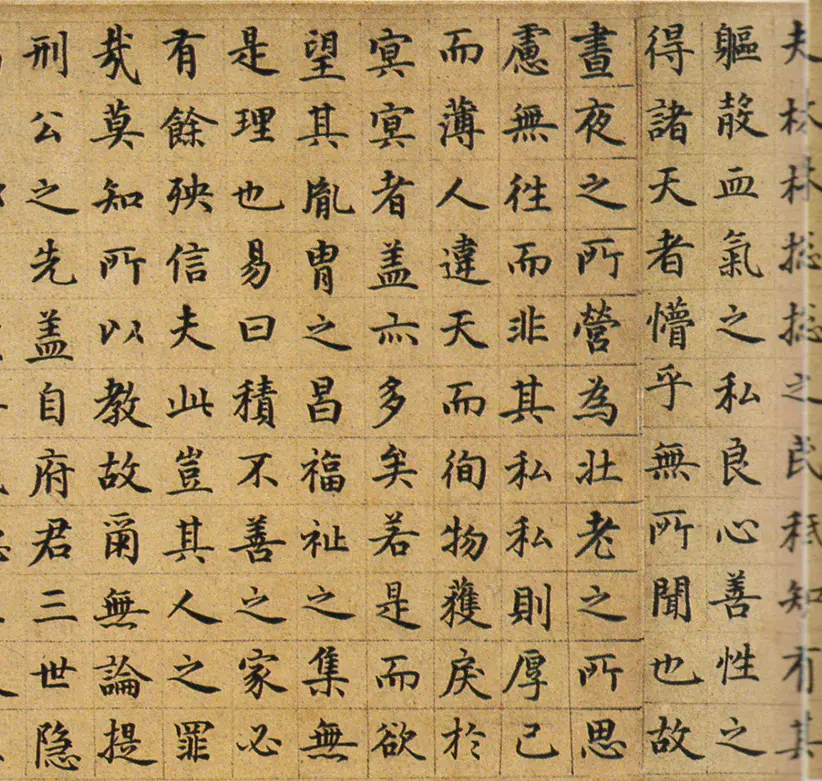 夫林林揔揔之民秪知有其
軀殽血氣之私良心善性之
得諸天者懵乎無所聞也故
晝夜之所營為壯老之所思
慮無徃而非其私私則厚己
而薄人違天而徇物獲戾於
冥冥者盖亦多矣若是而欲
望其胤胄之昌福祉之集無
是理也易曰積不善之家必
有餘殃信夫此豈其人之罪
哉莫知所以教故爾無論提
刑公之先盖自府君三世隐